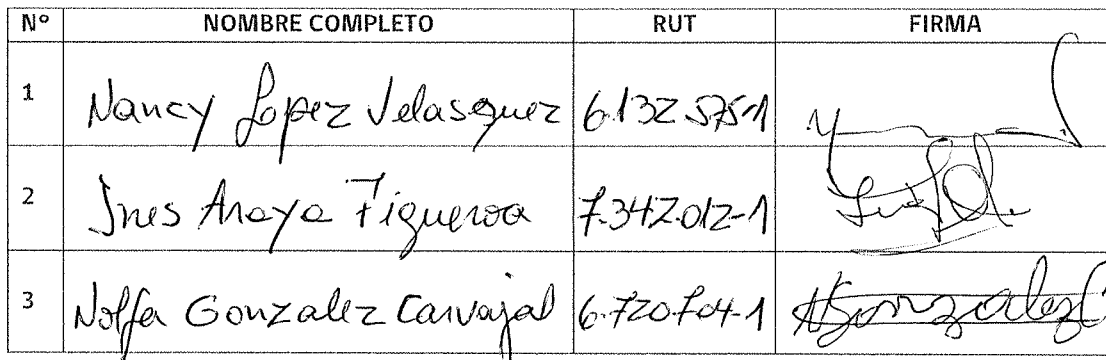 Nº NOMBRE COMPLETO RUT FIRMA
1 Nancy Lopez Velasquez 6.132.575-1
2 Ines Araya Figueroa 7.342.012-1
3 Nolfa Gonzalez Carvajal 6.720.704-1 NGonzalezC